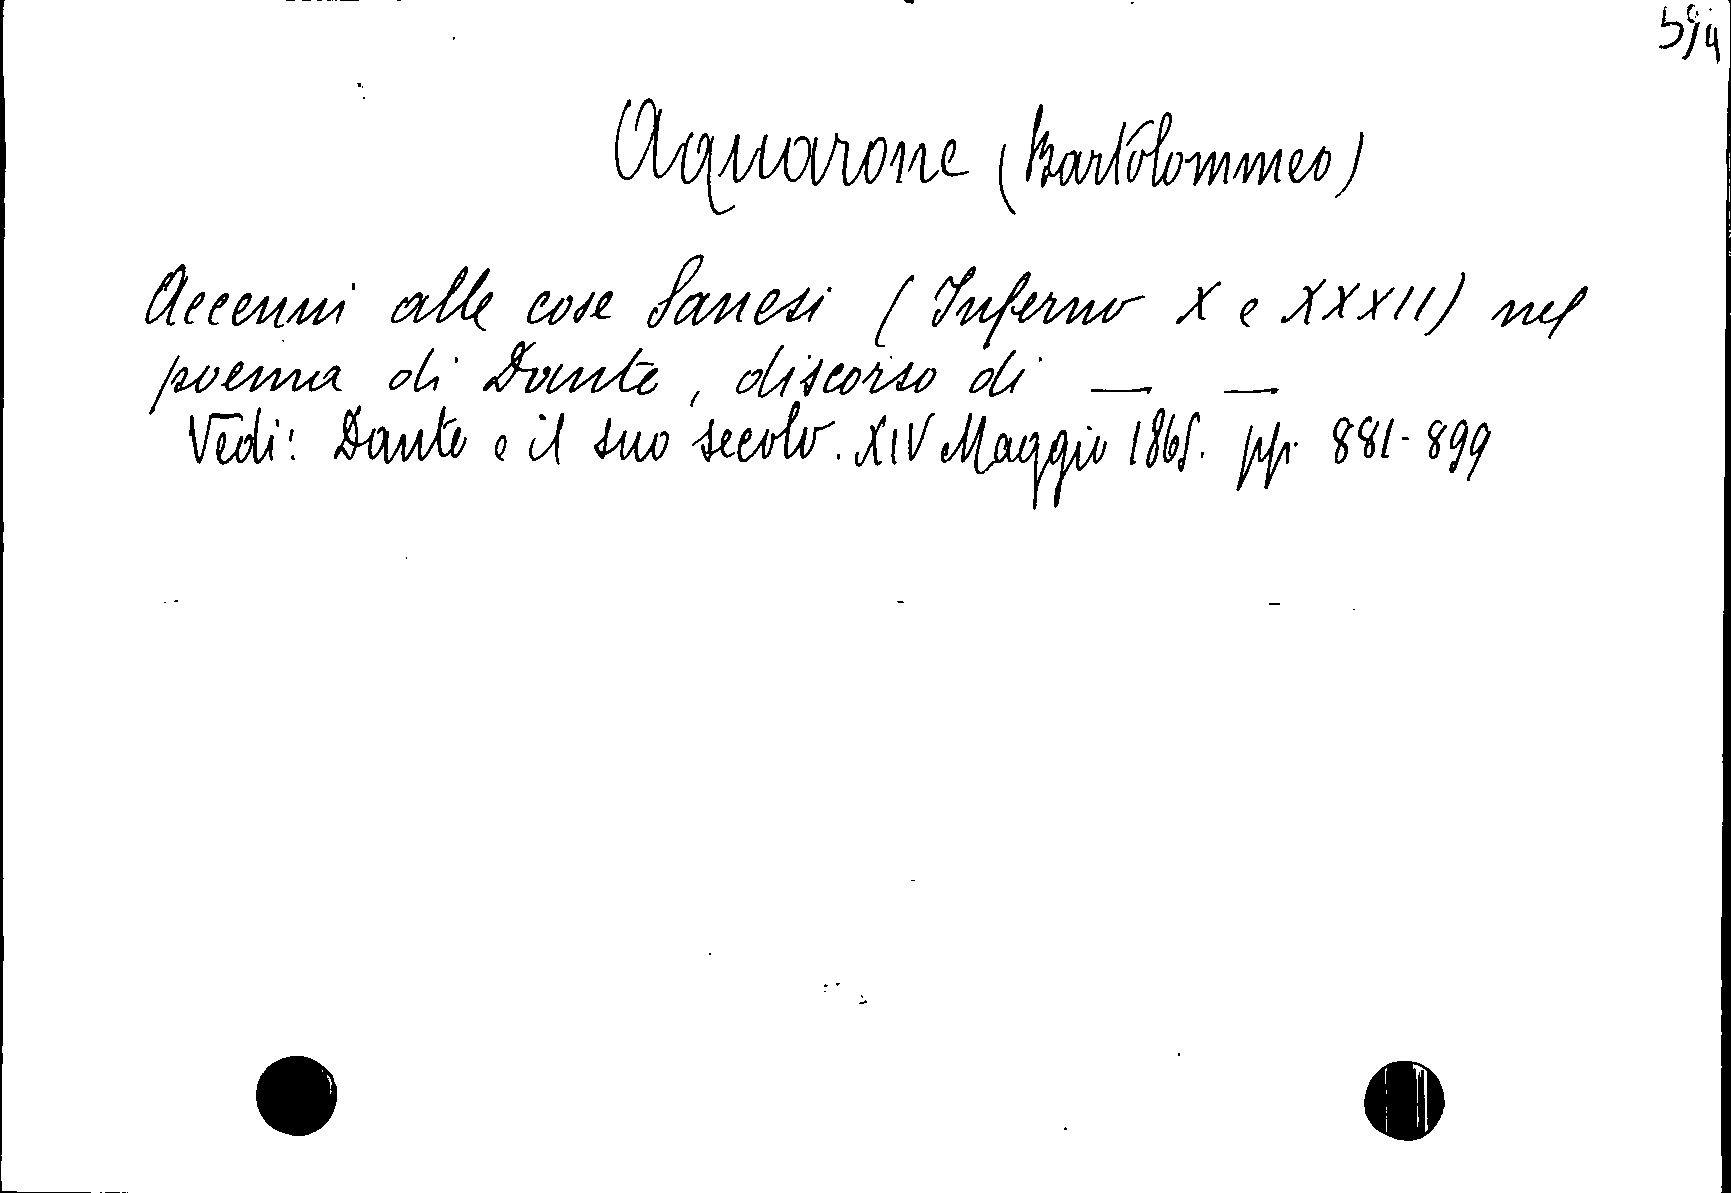 Aquarone (Bartolommeo)
Accenni alle cose Sanesi (Inferno X e XXXII) nel
poema di Dante, discorso di — —
Vedi: Dante e il suo secolo. XIV Maggio 1865. pp. 881-899